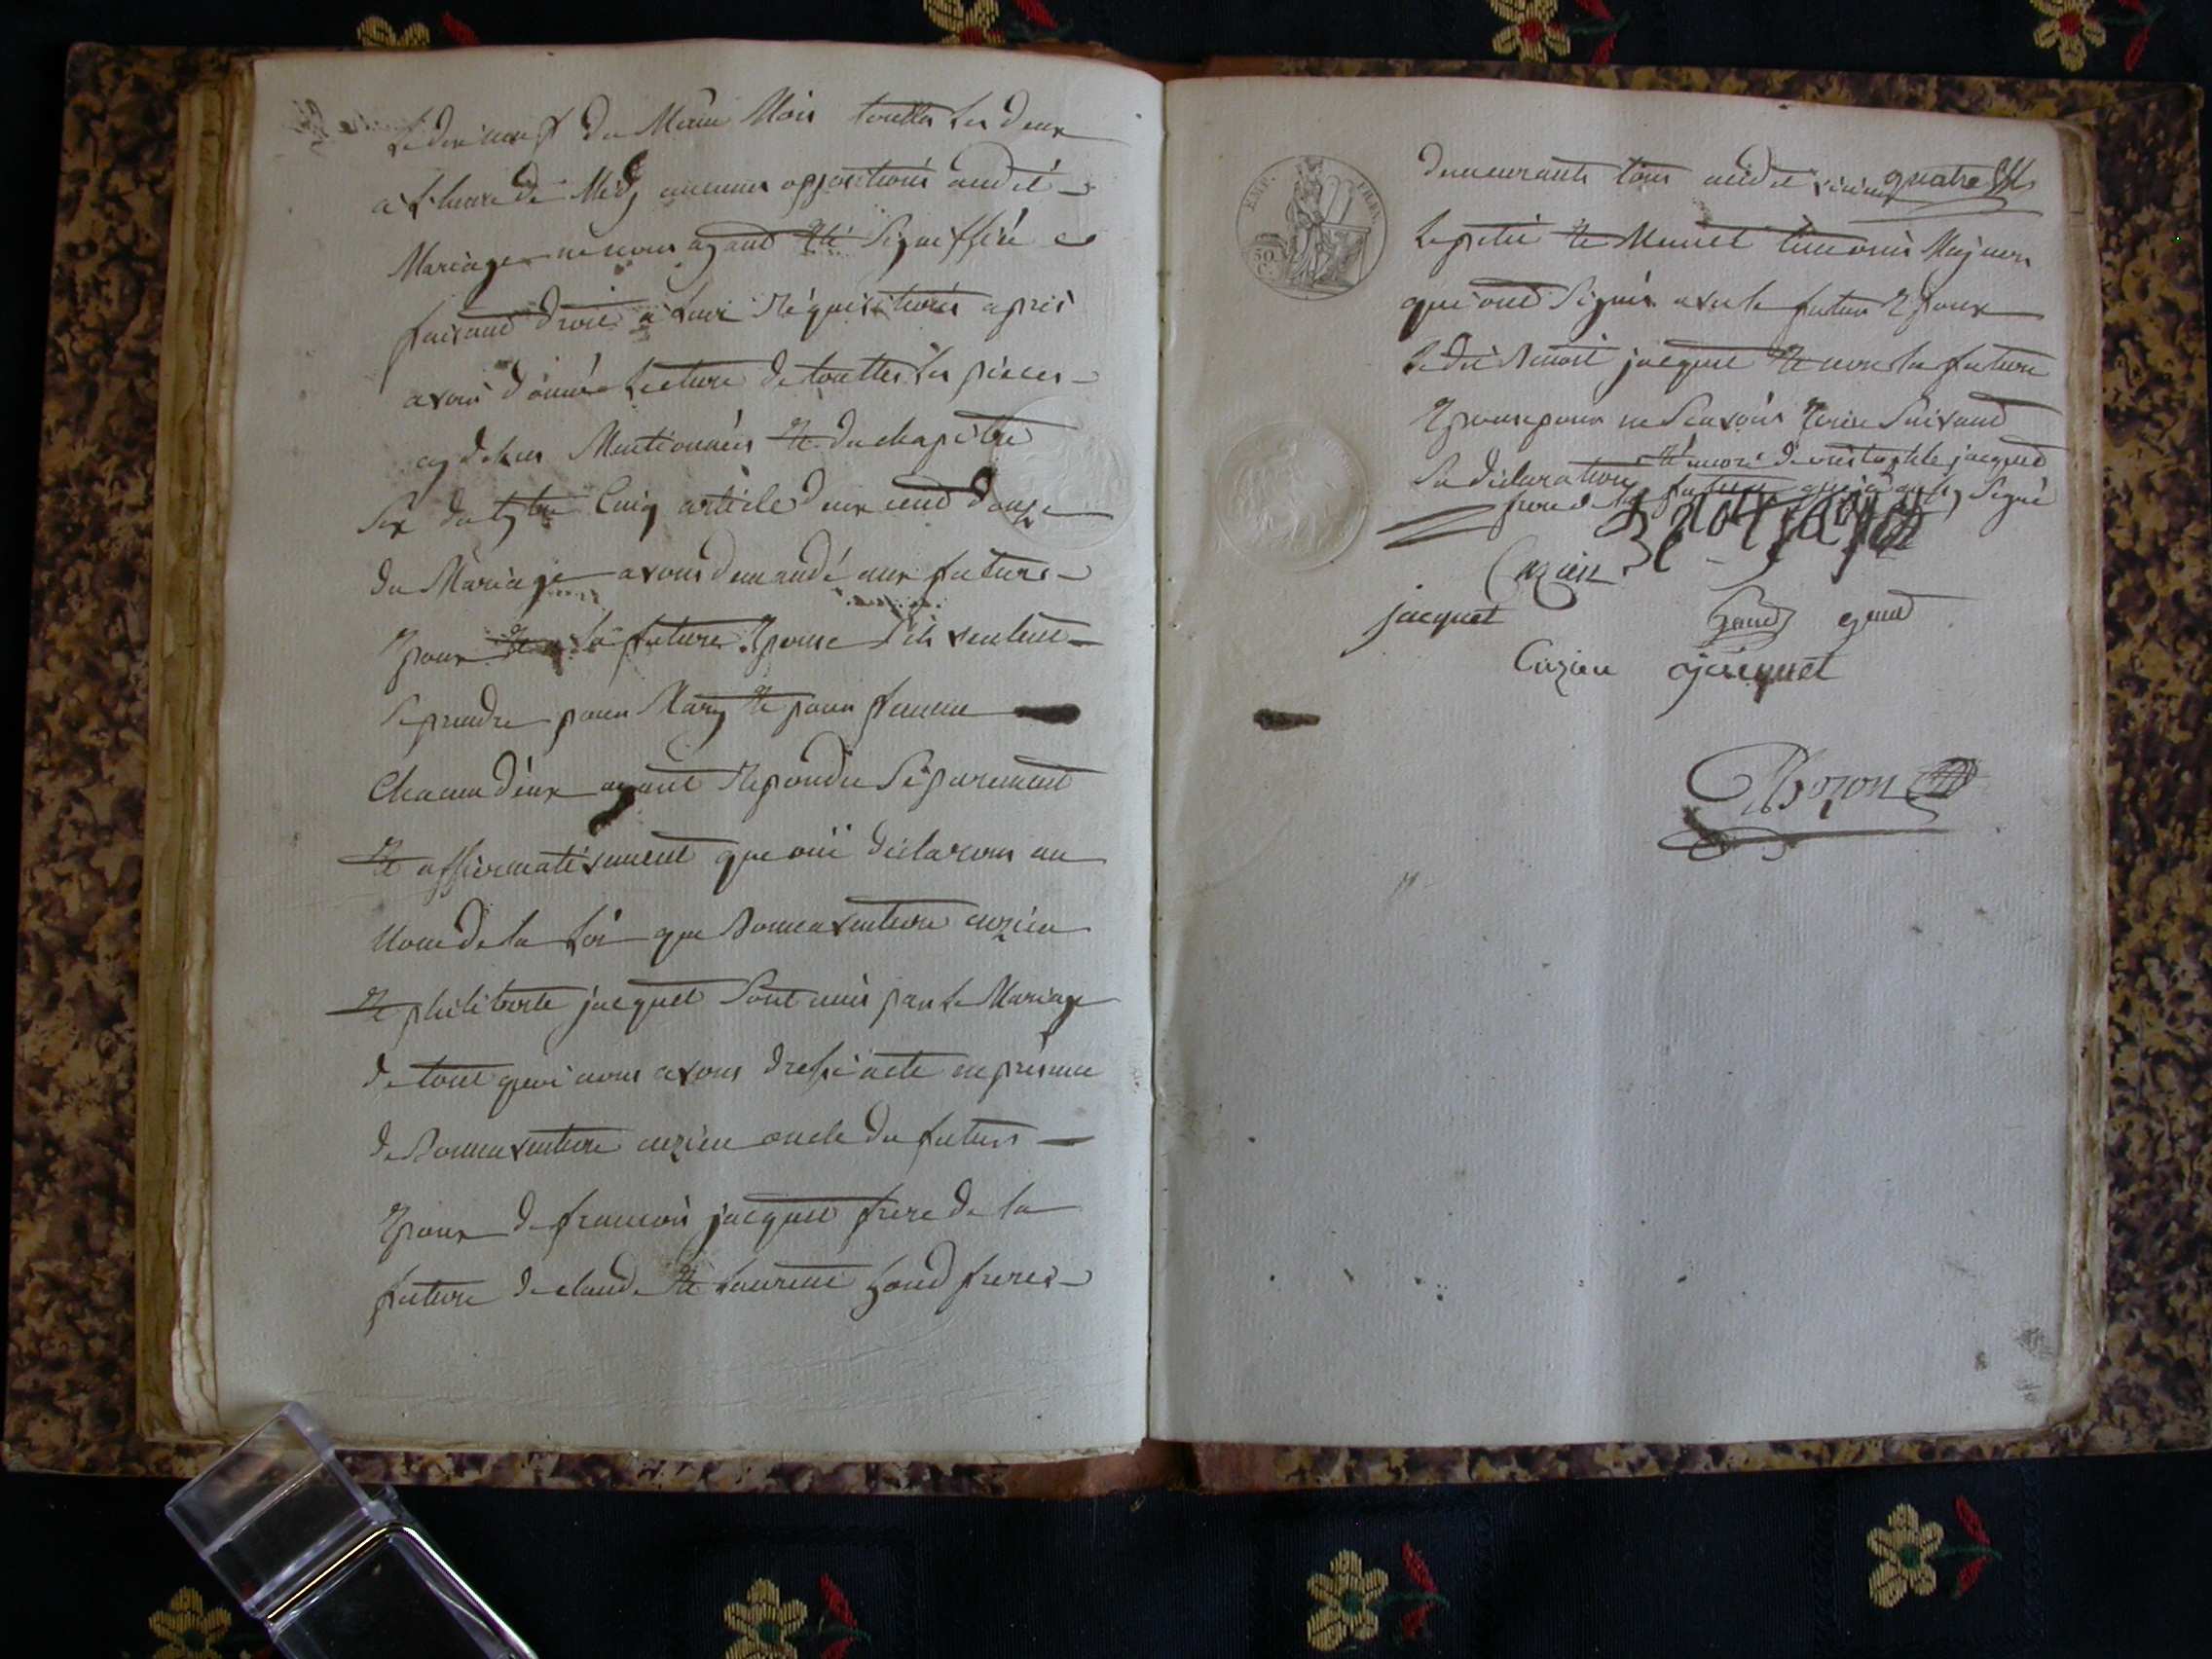 Le dix neuf du Même Mois touttes Les deux
a L'heure de Midy aucunes oppositions audit
Mariage ne nous ayant Eté Signiffiée
faisand droit a Leur Réquisitions apres
avoir donné Lecture de touttes Les pièces
cy dessus Mentionnées Et du chapitre
Six du tytre Cinq article deux cend douze
du Mariage avons demandé aux futurs
Epoux Et a la future Epouse s'ils veulent
Se prendre pour Mary Et pour femme
Chacun d'eux ayant Repondu Séparement
Et affirmativement que oui déclarons au
Nom de la Loi que Bonnaventure cuzieu
Et philiberte jacquet Sont unis par Le Mariage
de tout quoi nous avons dressé acte en présence
de Bonnaventure cuzieu oncle du futurs
Epoux de francois jacquet frere de la
future de claude Et Laurent gond freres
EMP. FRAN.
50 C.
demeurants tous audit quatre
Le petit Et Muniet témoins Majeurs
qui ond Signés avec le futur Epoux
Le dit Benoit jacquet Et non la future
Epouse pour ne Scavoir Ecrire Suivand
Sa déclaration Et encore de jacquet
frere de la future qui a Signé
Cuzieu
jacquet gond
Cuzieu jacquet
Bozon